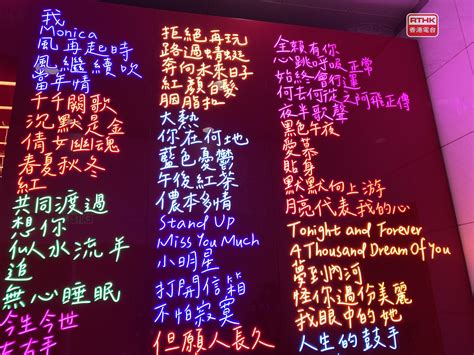 RTHK
香港電台
我
Monica
風再起時
風繼續吹
當年情
千千闋歌
沉默是金
倩女幽魂
春夏秋冬
紅
共同渡過
想你
似水流年
追
無心睡眠
今生今世
左右手
拒絕再玩
路過蜻蜓
奔向未來日子
紅顏白髮
胭脂扣
大熱
你在何地
藍色憂鬱
午後紅茶
儂本多情
Stand Up
Miss You Much
小明星
打開信箱
不怕寂寞
但願人長久
全賴有你
心跳呼吸正常
始終會行運
何去何從之阿飛正傳
夜半歌聲
黑色午夜
愛慕
貼身
默默向上游
月亮代表我的心
Tonight and Forever
A Thousand Dream Of You
夢到內河
怪你過份美麗
我眼中的她
人生的鼓手